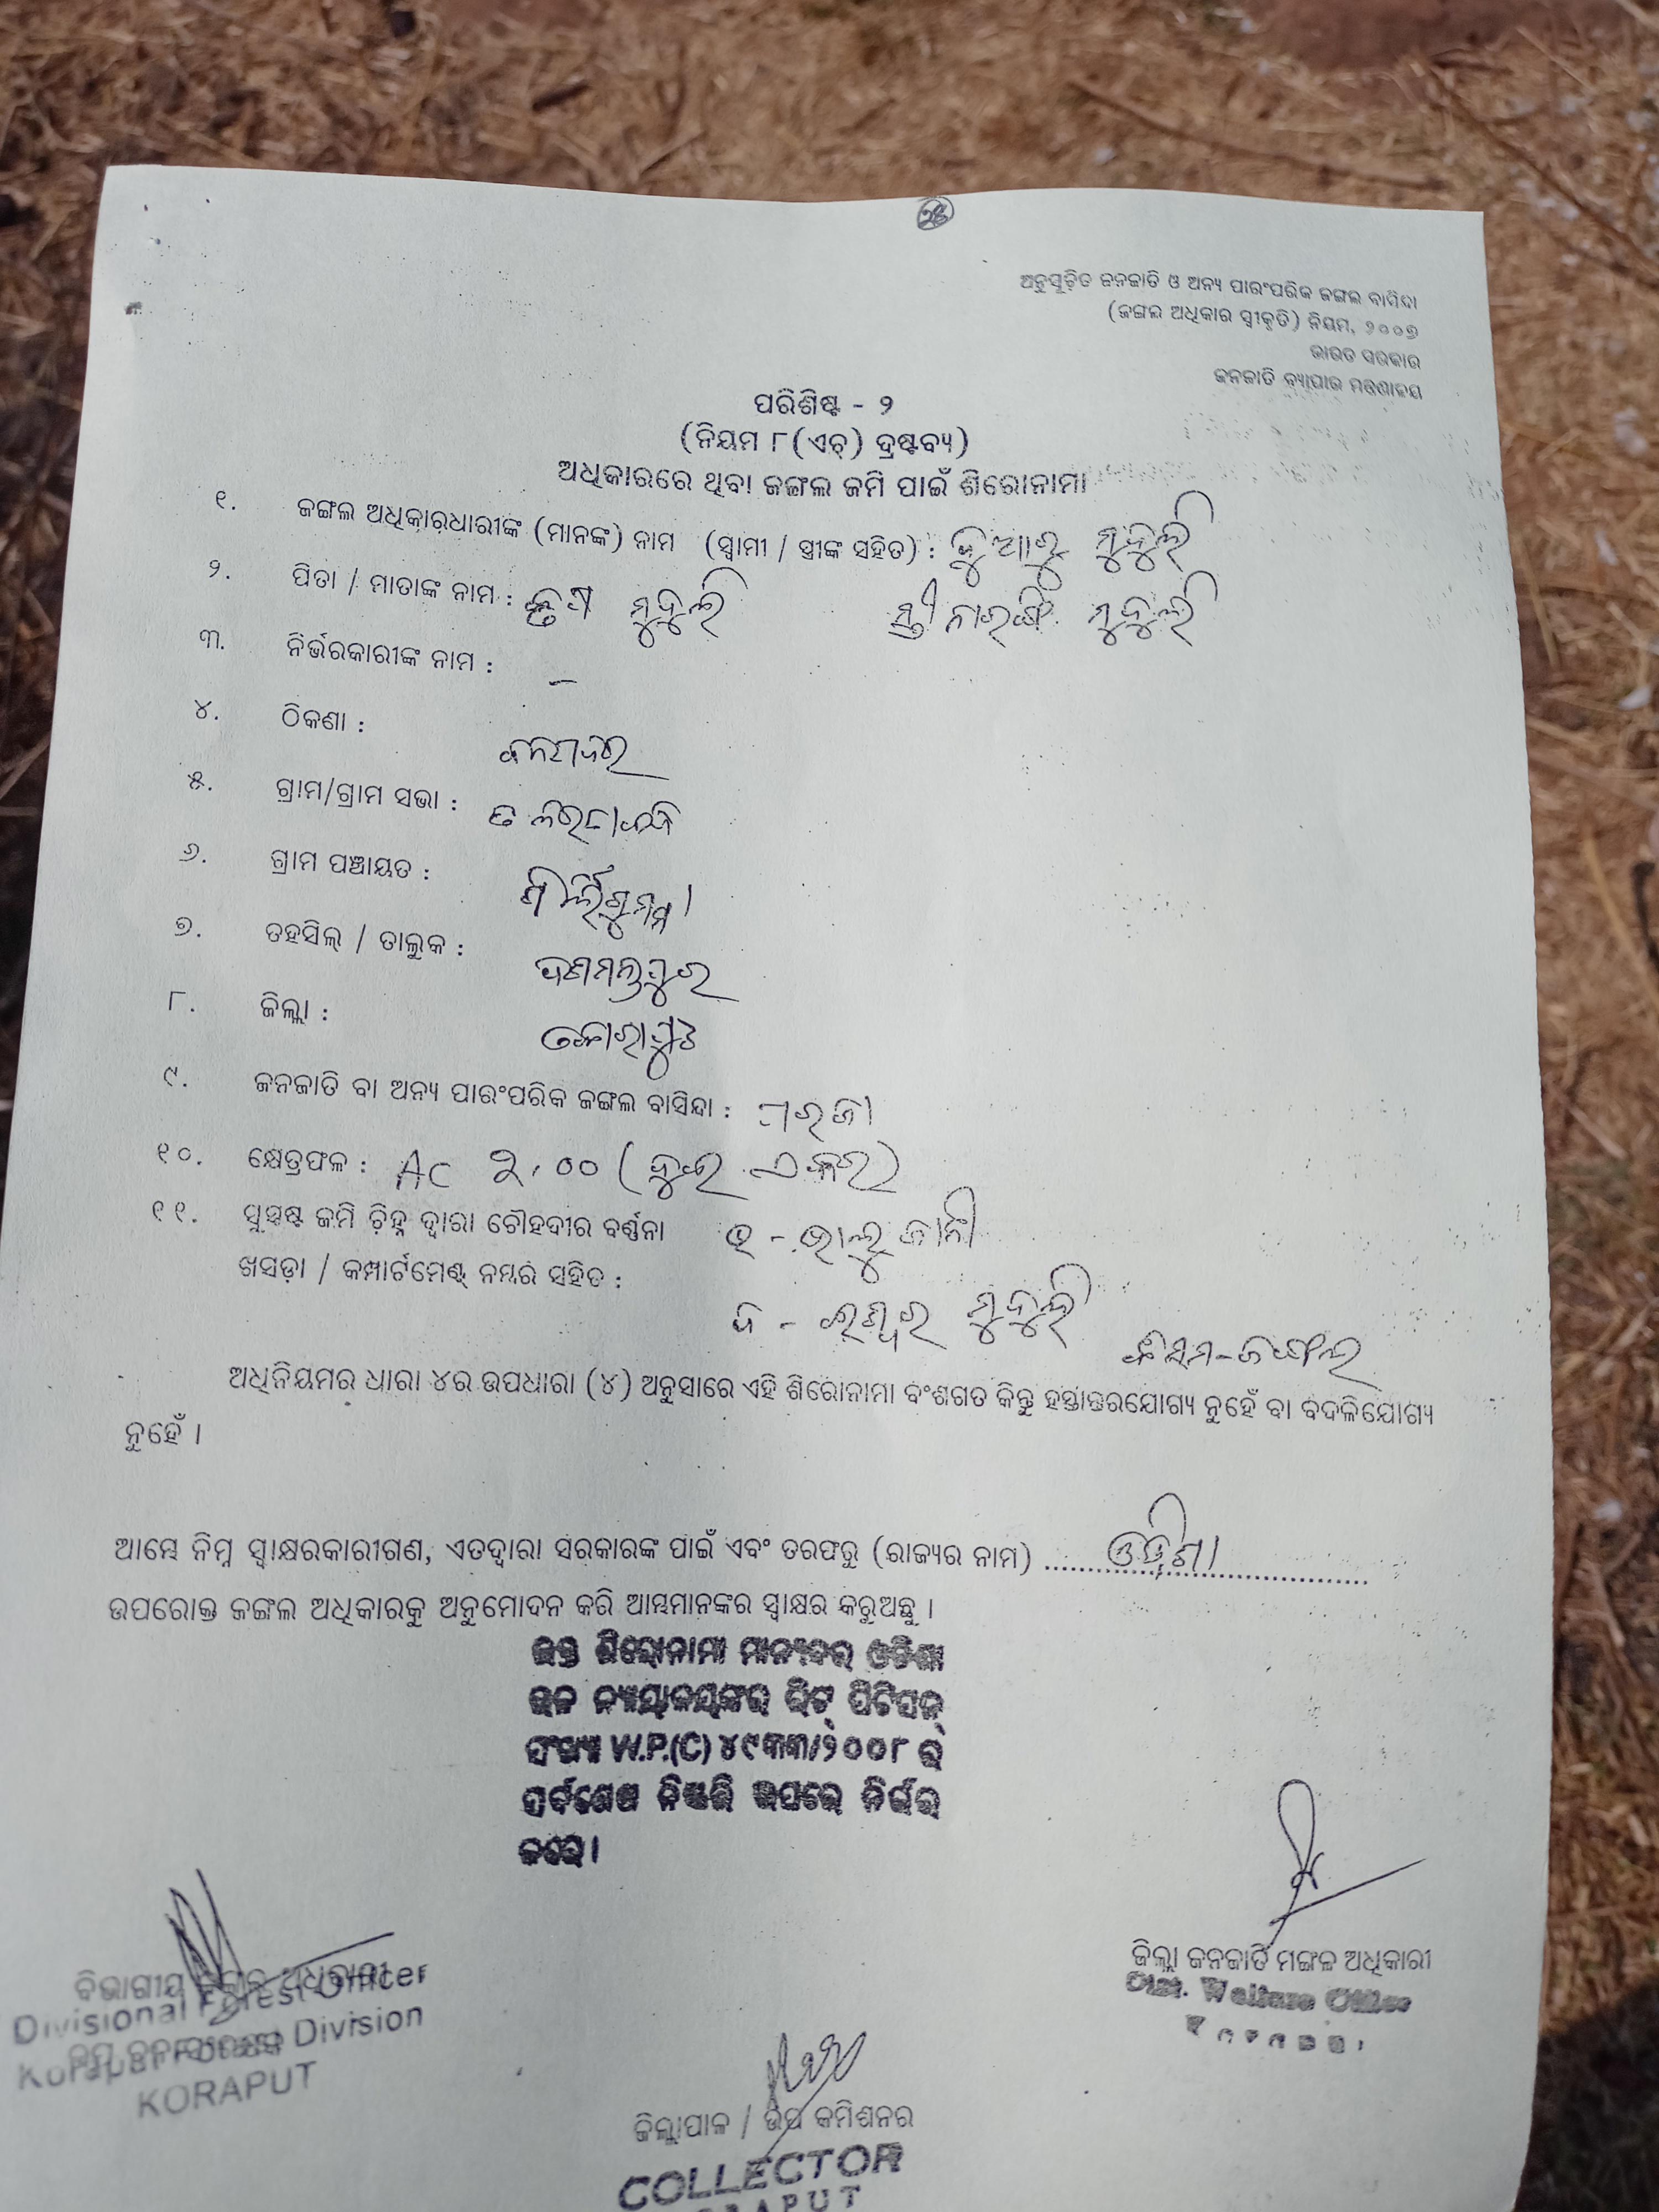 ୨୫
ଅନୁସୂଚିତ ଜନଜାତି ଓ ଅନ୍ୟ ପାରଂପରିକ ଜଙ୍ଗଲ ବାସିନ୍ଦା
(ଜଙ୍ଗଲ ଅଧିକାର ସ୍ୱୀକୃତି) ନିୟମ, ୨୦୦୭
ଭାରତ ସରକାର
ଜନଜାତି ବ୍ୟାପାର ମନ୍ତ୍ରଣାଳୟ
ପରିଶିଷ୍ଟ - ୨
(ନିୟମ ୮(ଏଚ୍) ଦ୍ରଷ୍ଟବ୍ୟ)
ଅଧିକାରରେ ଥିବା ଜଙ୍ଗଲ ଜମି ପାଇଁ ଶିରୋନାମା
୧. ଜଙ୍ଗଲ ଅଧିକାରଧାରୀଙ୍କ (ମାନଙ୍କ) ନାମ (ସ୍ୱାମୀ / ସ୍ତ୍ରୀଙ୍କ ସହିତ) : ମୁଦୁଲି
୨. ପିତା / ମାତାଙ୍କ ନାମ : ମୁଦୁଲି ସ୍ତ୍ରୀ ମୁଦୁଲି
୩. ନିର୍ଭରକାରୀଙ୍କ ନାମ : –
୪. ଠିକଣା :
୫. ଗ୍ରାମ/ଗ୍ରାମ ସଭା :
୬. ଗ୍ରାମ ପଞ୍ଚାୟତ :
୭. ତହସିଲ୍ / ତାଲୁକ : ଦଶମନ୍ତପୁର
୮. ଜିଲ୍ଲା : କୋରାପୁଟ
୯. ଜନଜାତି ବା ଅନ୍ୟ ପାରଂପରିକ ଜଙ୍ଗଲ ବାସିନ୍ଦା : ପରଜା
୧୦. କ୍ଷେତ୍ରଫଳ : AC ୨.୦୦ (ଦୁଇ ଏକର)
୧୧. ସୁସ୍ପଷ୍ଟ ଜମି ଚିହ୍ନ ଦ୍ୱାରା ଚୌହଦୀର ବର୍ଣ୍ଣନା ଜାନି
ଖସଡ଼ା / କମ୍ପାର୍ଟମେଣ୍ଟ ନମ୍ବର ସହିତ :
ଦ - ଈଶ୍ୱର ମୁଦୁଲି
କିସମ-ଜଙ୍ଗଲ
ଅଧିନିୟମର ଧାରା ୪ର ଉପଧାରା (୪) ଅନୁସାରେ ଏହି ଶିରୋନାମା ବଂଶଗତ କିନ୍ତୁ ହସ୍ତାନ୍ତରଯୋଗ୍ୟ ନୁହେଁ ବା ବଦଳିଯୋଗ୍ୟ
ନୁହେଁ ।
ଆମ୍ଭେ ନିମ୍ନ ସ୍ୱାକ୍ଷରକାରୀଗଣ, ଏତଦ୍ୱାରା ସରକାରଙ୍କ ପାଇଁ ଏବଂ ତରଫରୁ (ରାଜ୍ୟର ନାମ) ଓଡ଼ିଶା
ଉପରୋକ୍ତ ଜଙ୍ଗଲ ଅଧିକାରକୁ ଅନୁମୋଦନ କରି ଆମ୍ଭମାନଙ୍କର ସ୍ୱାକ୍ଷର କରୁଅଛୁ ।
ଉକ୍ତ ଶିରୋନାମା ମାନ୍ୟବର ଓଡିଶା
ଉଚ୍ଚ ନ୍ୟାୟାଳୟଙ୍କର ରିଟ୍ ପିଟିସନ୍
ସଂଖ୍ୟା W.P.(C) ୪୯୩୩/୨୦୦୮ ର
ସର୍ବଶେଷ ନିଷ୍ପତ୍ତି ଉପରେ ନିର୍ଭର
କରେ ।
ବିଭାଗୀୟ ଜଙ୍ଗଲ ଅଧିକାରୀ
Divisional Forest Officer
Koraput Forest Division
KORAPUT
ଜିଲ୍ଲା ଜନଜାତି ମଙ୍ଗଳ ଅଧିକାରୀ
Dist. Welfare Officer
ଜିଲ୍ଲାପାଳ / ଉପ କମିଶନର
COLLECTOR
KORAPUT